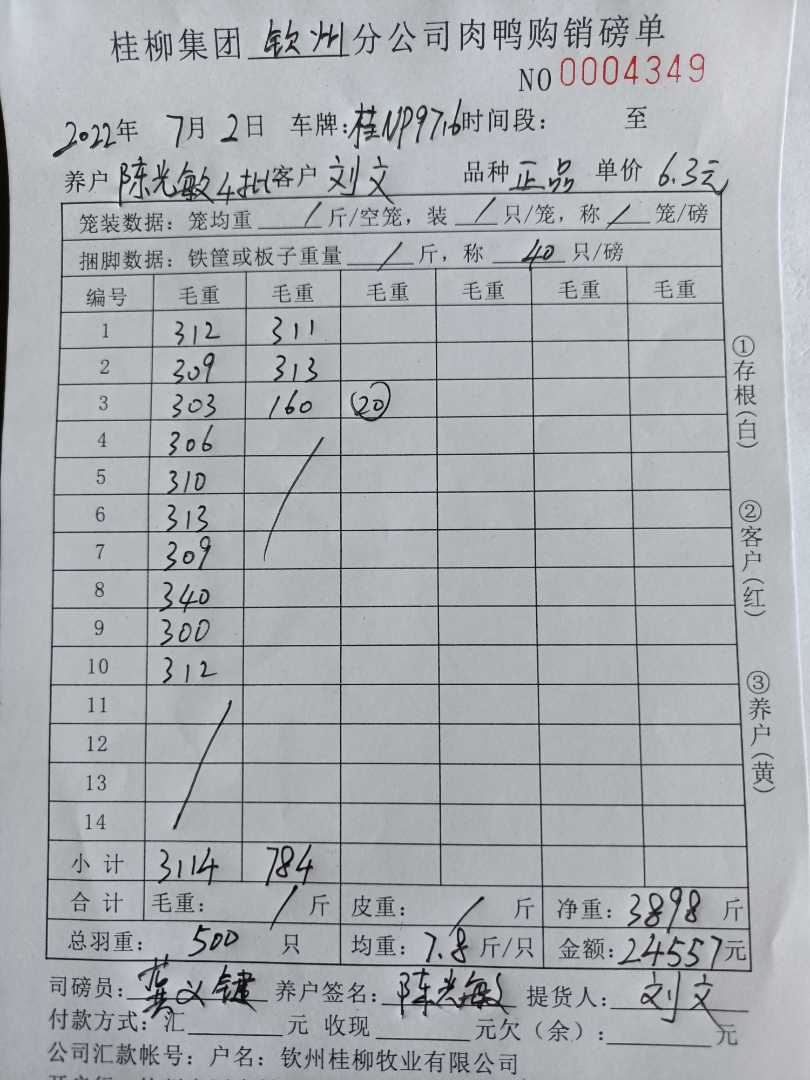 桂柳集团 钦州 分公司肉鸭购销磅单
NO 0004349
2022年 7月 2日 车牌:桂NP97 时间段: 至
养户 陈光敏4批 客户 刘文 品种 正品 单价 6.3元
笼装数据: 笼均重 / 斤/空笼, 装 / 只/笼, 称 / 笼/磅
捆脚数据: 铁筐或板子重量 / 斤, 称 40 只/磅
编号 毛重 毛重 毛重 毛重 毛重 毛重
1 312 311
2 309 313
3 303 160 20
4 306
5 310
6 313
7 309
8 340
9 300
10 312
11
12
13
14
小计 3114 784
合计 毛重: / 斤 皮重: / 斤 净重: 3898 斤
总羽重: 500 只 均重: 7.8 斤/只 金额: 24557元
司磅员: 龚义键 养户签名: 陈光敏 提货人: 刘文
付款方式: 汇 元 收现 元欠(余): 元
公司汇款帐号: 户名: 钦州桂柳牧业有限公司
①存根(白)
②客户(红)
③养户(黄)